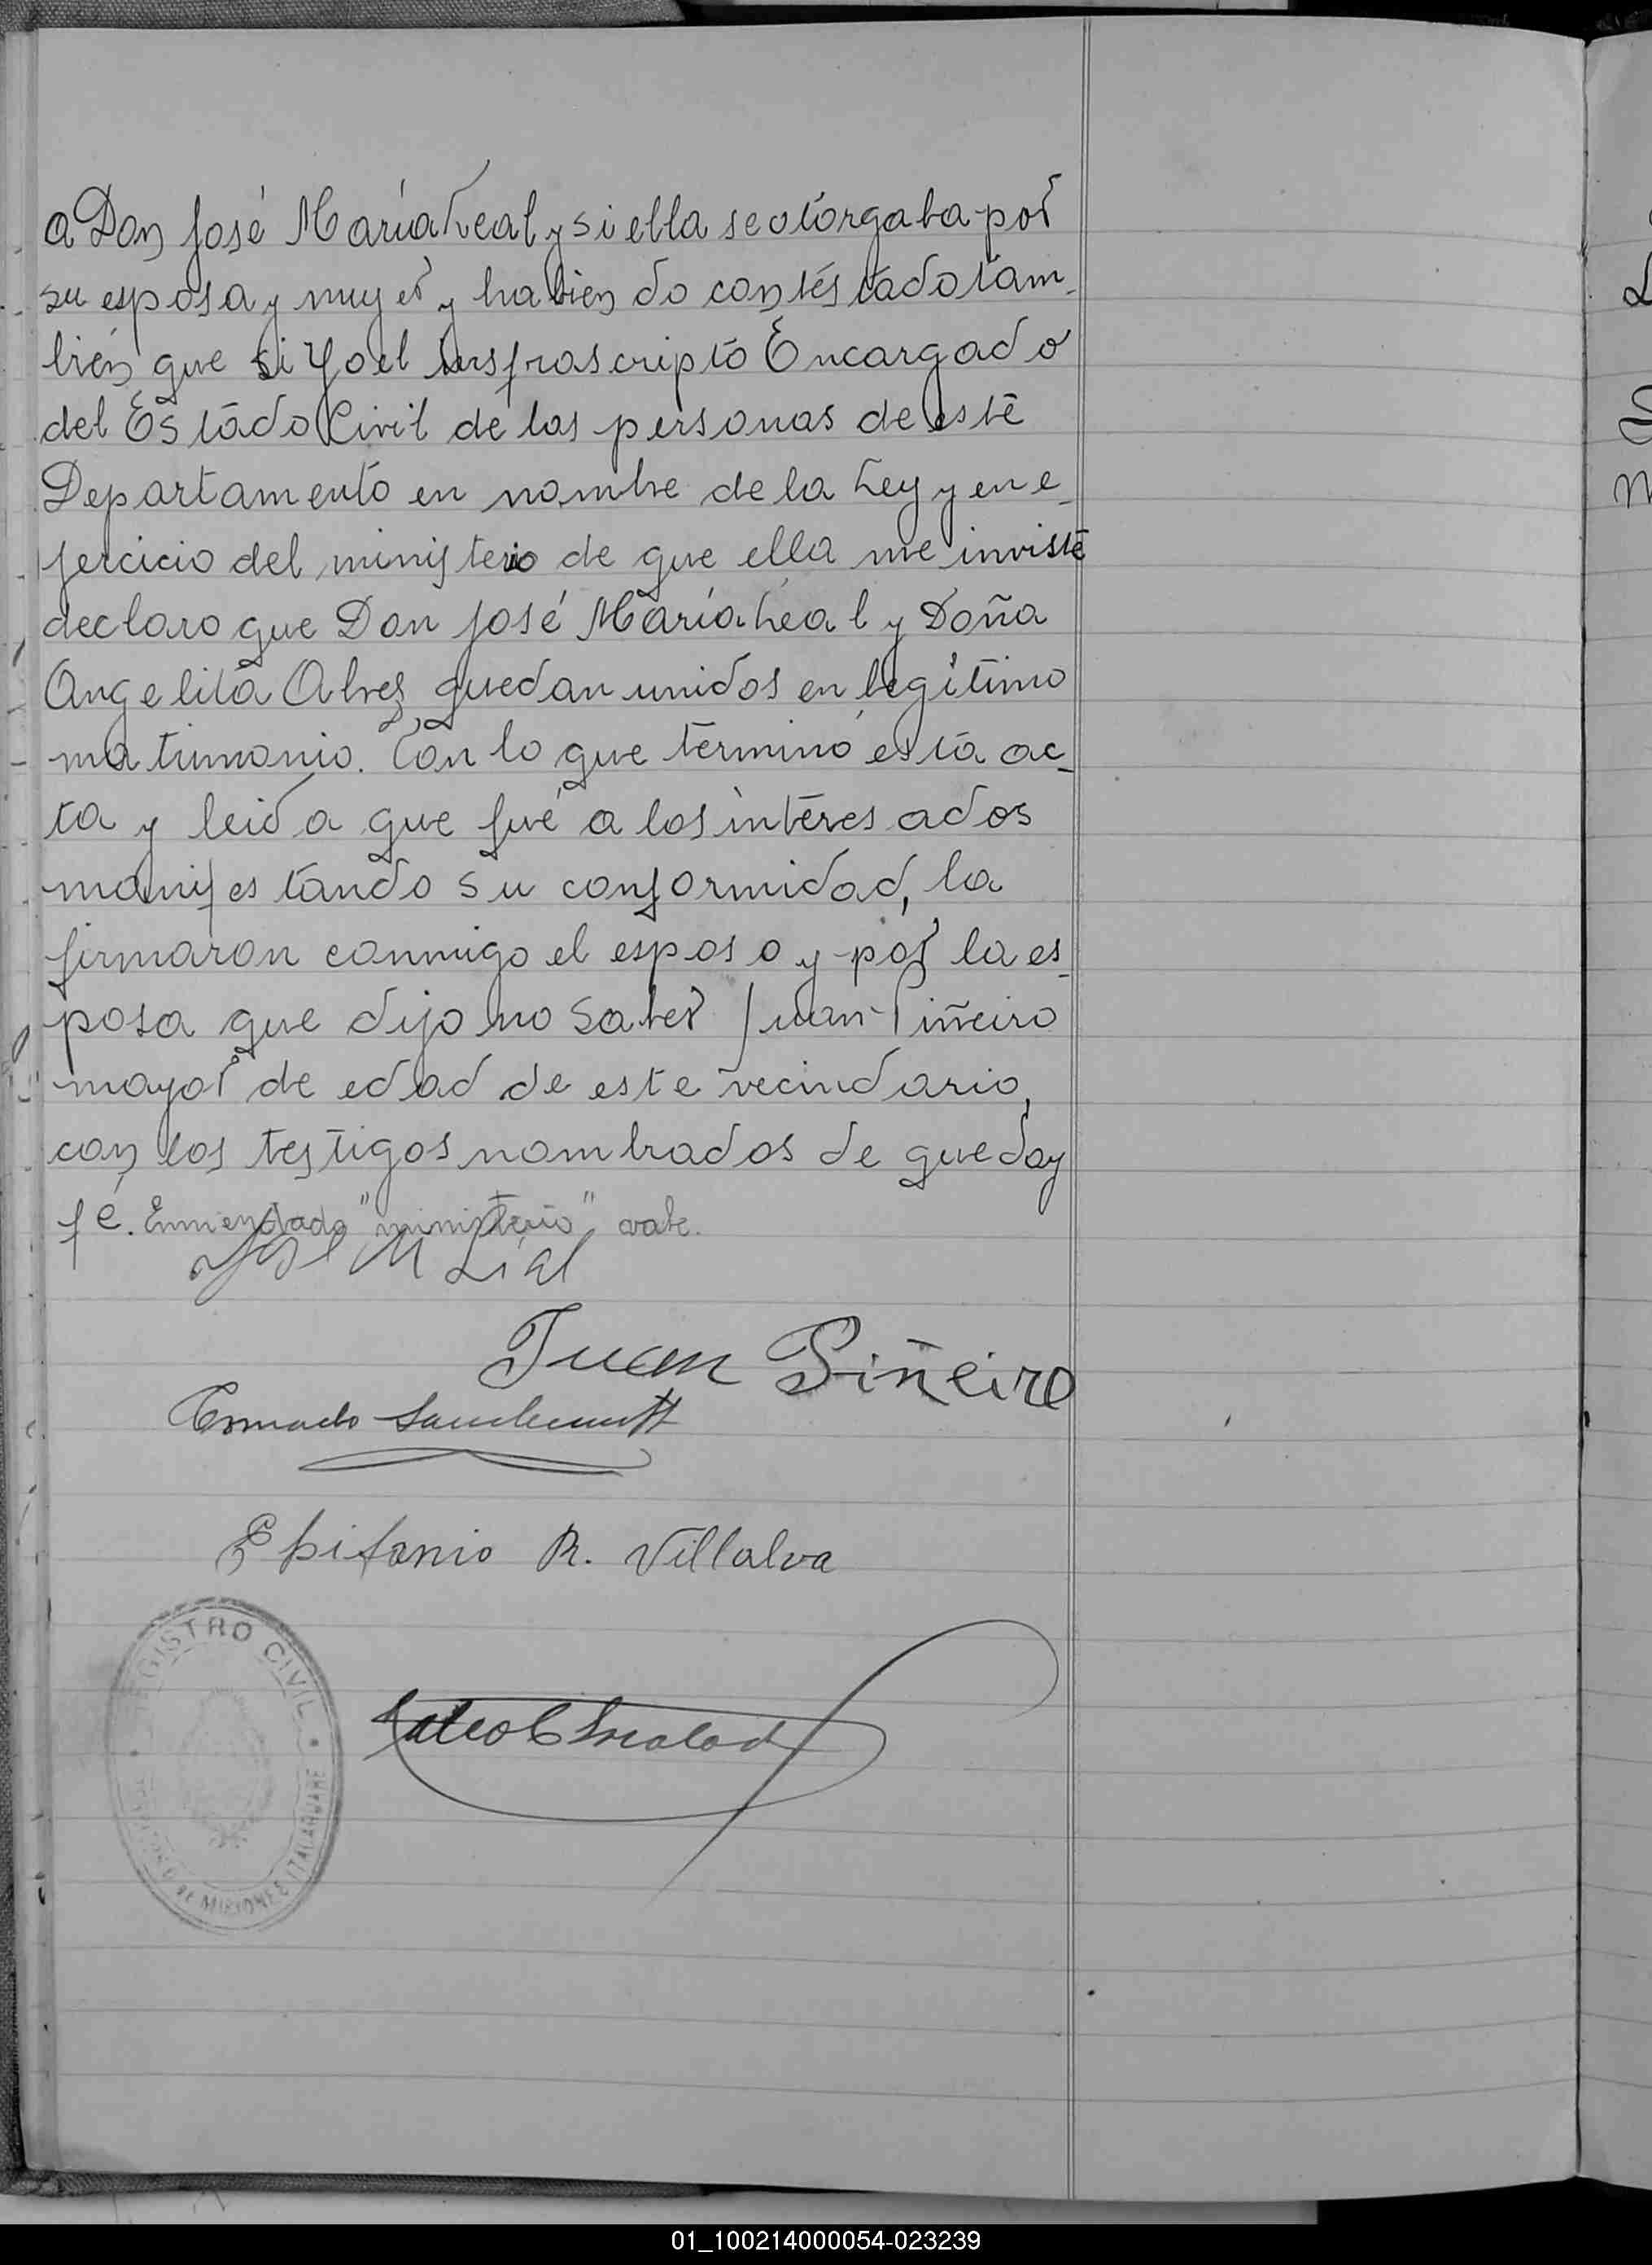 a Don José María Leal y si ella se otorgaba por
su esposa y muger y habiendo contestado tam-
bién que si Yo el Infrascripto Encargado
del Estado Civil de las personas de este
Departamento en nombre de la Ley y en e-
jercicio del ministerio de que ella me inviste
declaro que Don José María Leal y Doña
Angelita Alvez, quedan unidos en legítimo
matrimonio. Con lo que terminó esta ac-
ta y leida que fué a los interesados
manifestando su conformidad, la
firmaron conmigo el esposo y por la es-
posa que dijo no saber Juan Piñeiro
mayor de edad de este vecindario,
con los testigos nombrados de que doy
fé. Enmendado "ministerio" vale.
José M Lial
Juan Piñeiro
Epifanio R. Villalva
REGISTRO CIVIL
DE MISIONES ITACARUARE
01_100214000054-023239